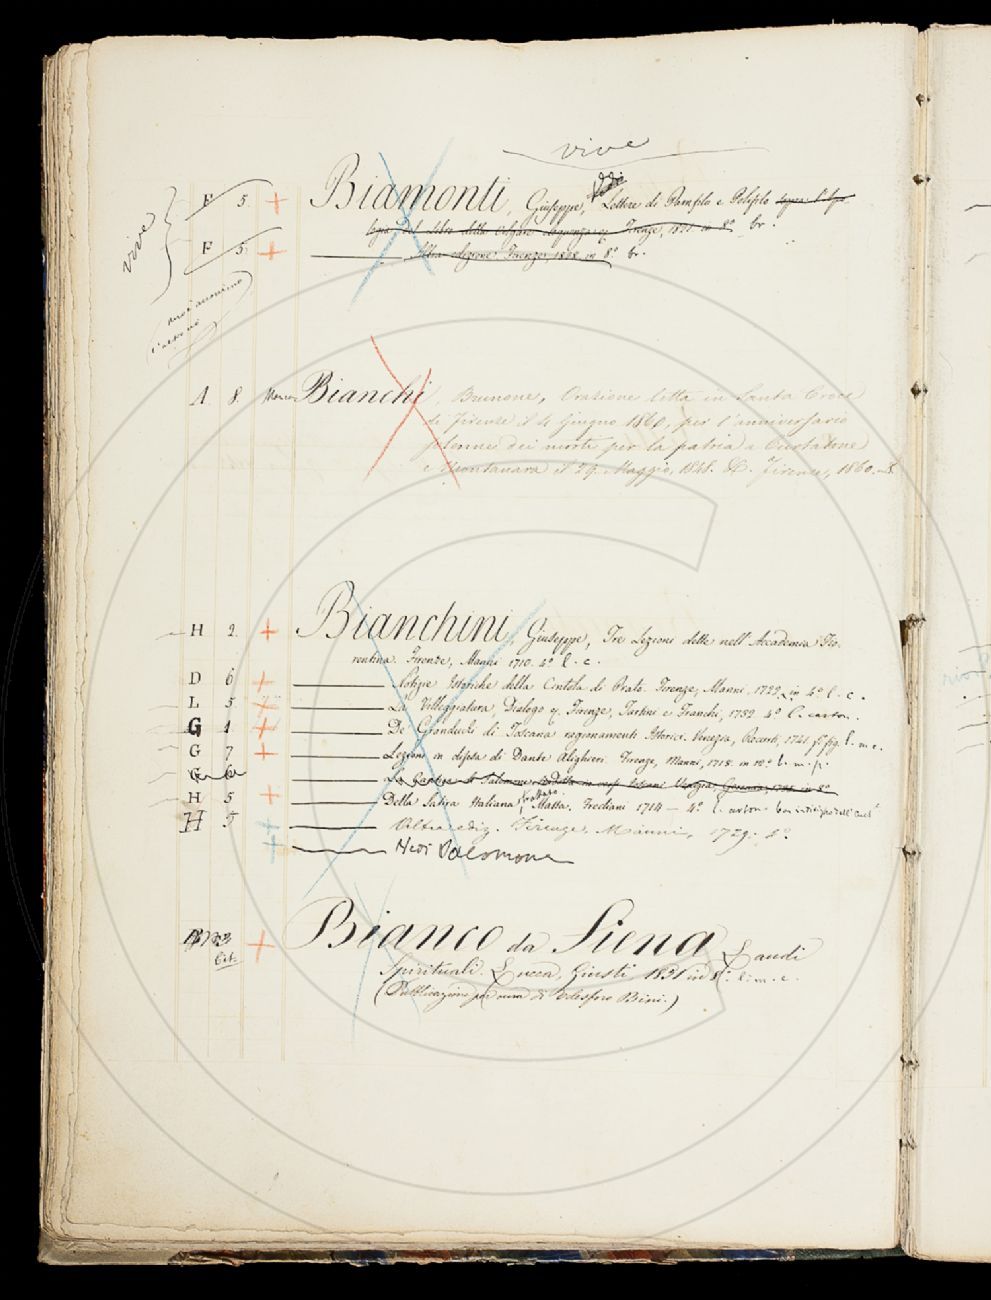 vive
F 5 + Biamonti, Giuseppe, Lettere di Panfilo e Polifilo sopra l'Apo
logia del libro della volgare eloquenza Firenze, 1821 in 8º br.
F 5 + Altra edizione Firenze, 1828, in 8º br.
vive
A 8 Bianchi, Brunone, Orazione letta in Santa Croce
di Firenze il 4 Giugno 1860, per l'anniversario
solenne dei morti per la patria a Curtatone
e Montanara il 29 Maggio, 1848. &. Firenze, 1860. in 8.
H 2 + Bianchini, Giuseppe, Tre Lezioni dette nell'Accademia Fio-
rentina. Firenze, Manni 1710. 4º l. c.
D 6 + Notizie Istoriche della Cintola di Prato. Firenze, Manni. 1722, in 4º l. c.
L 5 + La Villeggiatura, Dialogo Firenze, Tartini e Franchi, 1732 4º l. carton.
G 1 + De' Granduchi di Toscana ragionamenti Istorici. Venezia, Recurti, 1741 fº fig. l. m. c.
G 7 + Lezioni in difesa di Dante Alighieri. Firenze, Manni, 1718. in
La Cantica di Salomone ridotta in versi Toscani Venezia, in 8º
H 5 + Della Satira Italiana, Trattato. Massa. Frediani 1714 — 4º l. carton.
H 5 + Altra ediz. Firenze, Manni, 1729. 4º
+ Vedi Salomone
+ Bianco da Siena, Laudi
Spirituali. Lucca, Giusti 1851 in 8º. l. m. c.
(Pubblicazione per cura di Telesforo Bini.)